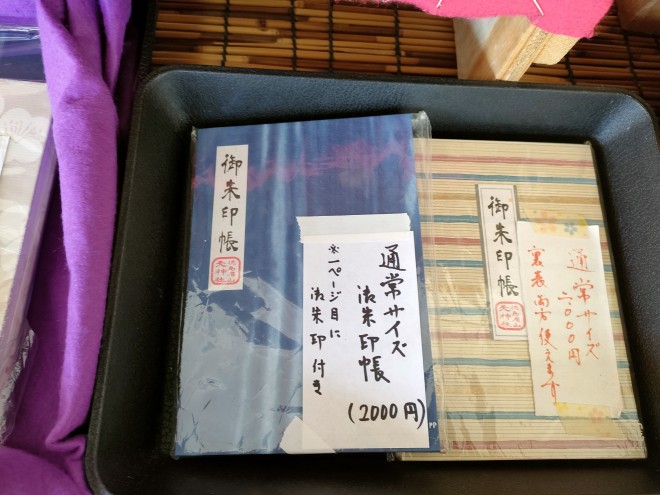 御朱印帳
通常サイズ
御朱印帳
(2000円)
※一ページ目に
御朱印付き
PP
御朱印帳
通常サイズ
六〇〇〇円
裏表両方使えます